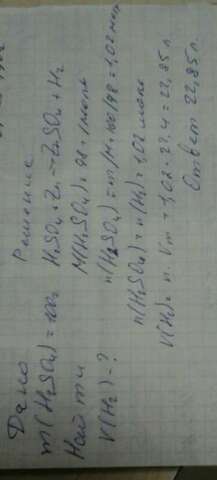 Дано
m(H2SO4)=100г
Найти
V(H2)-?
Решение
H2SO4+Zn→ZnSO4+H2
M(H2SO4)=98г/моль
n(H2SO4)=m/M=100/98=1,02 моль
n(H2SO4)=n(H2)=1,02 моль
V(H2)=n·Vm=1,02·22.4=22,85л.
Ответ 22,85л.